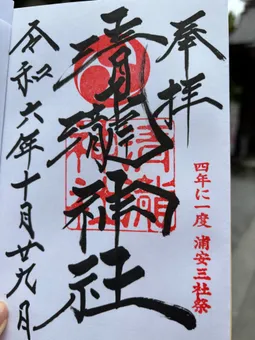 奉拝
清瀧神社
清瀧神社
四年に一度 浦安三社祭
令和六年十月廿九日